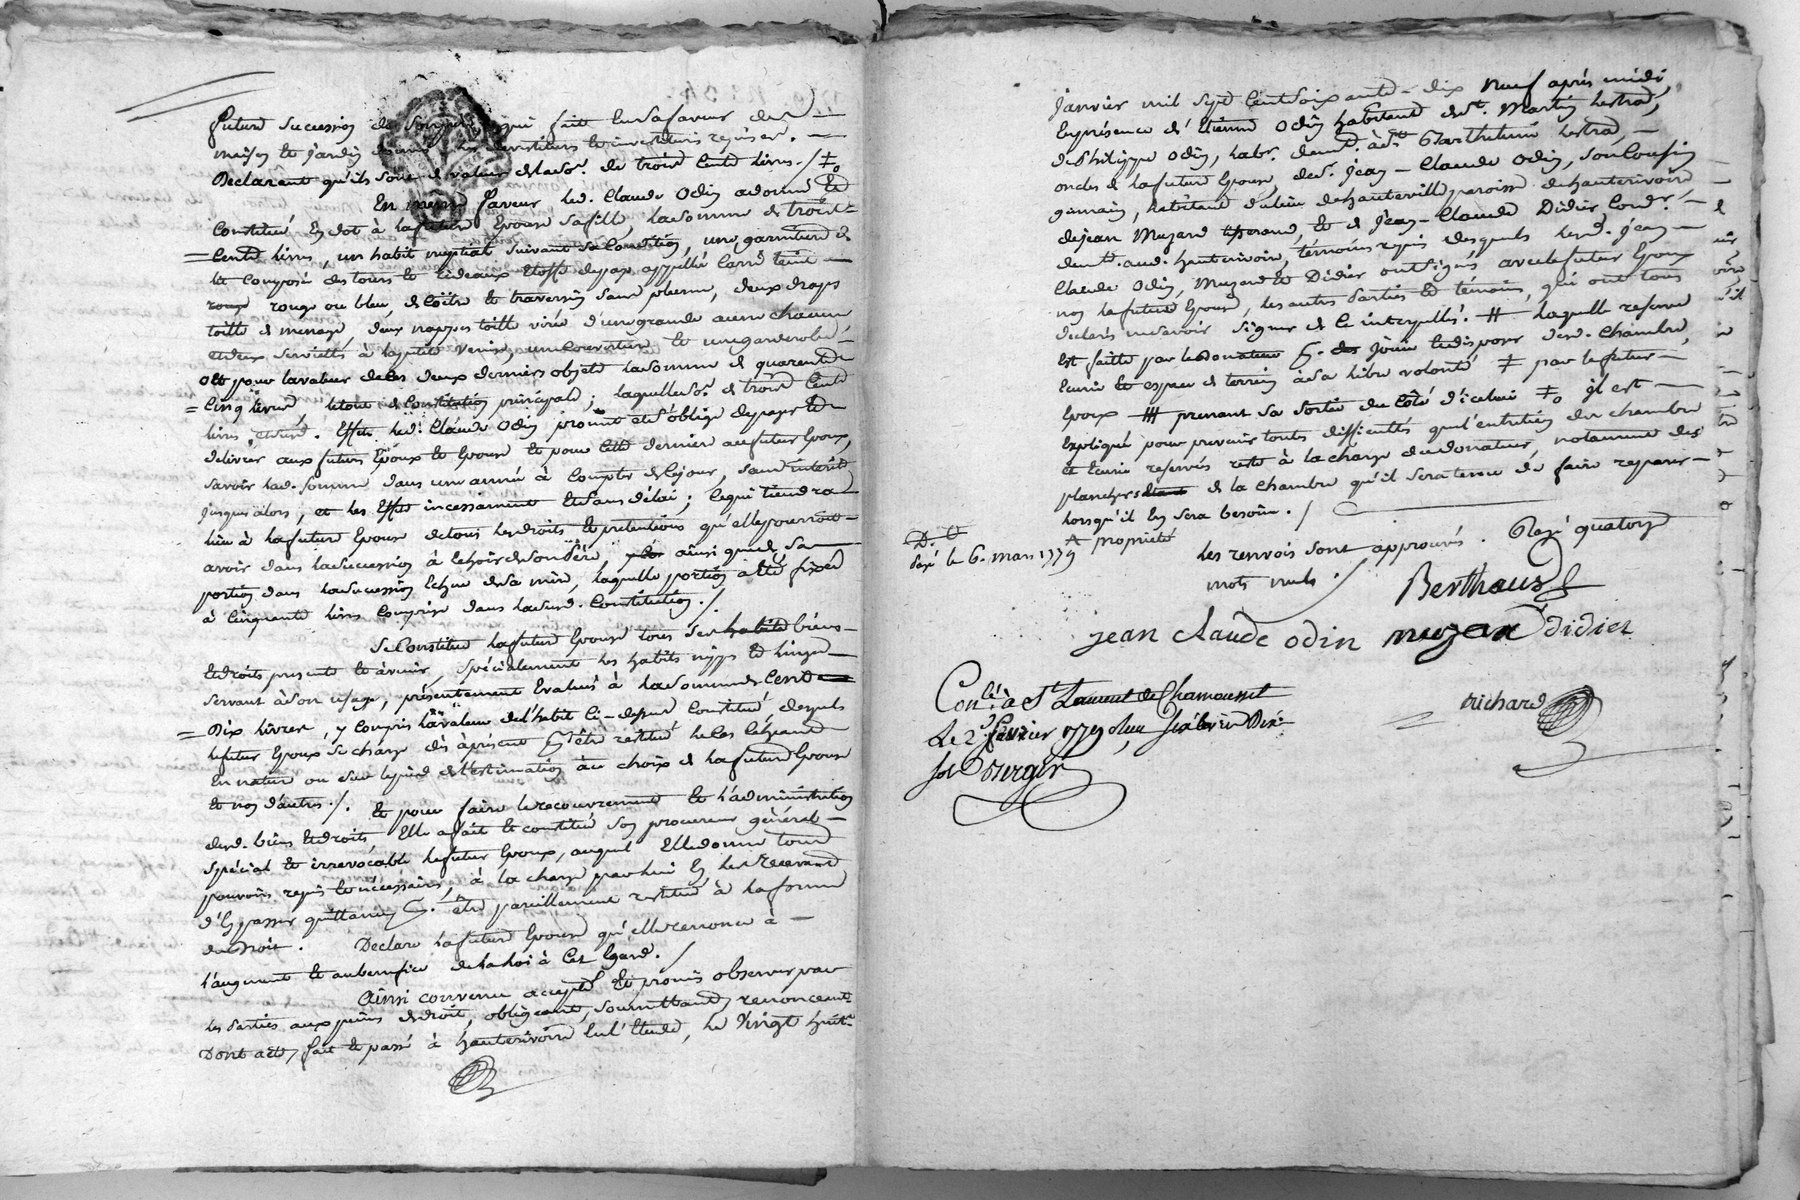 future succession de
maison et jardin
Declarent qu'ils sont de valeur de lad. so.e de trois cents livres. /
En meme faveur led. Claude Odin a donné et
constitué en dot à la future Epouse sa fille, la somme de trois
= Cents livres, un habit nuptial suivant sa condition, une garniture de
lit composée des tours et rideaux Etoffe appellée Carré teint
rouge ou bleu, de coitre et traversin sans plume, deux draps
toille de menage, deux nappes toille virée d'une grande aune chacune
et deux serviettes à la petite venise, une couverture et une garderobe
ou pour la valeur de ces deux derniers objets la somme de quarente
= Cinq livres, le tout de constitution principale; laquelle so.e de trois Cents
livres, et Effets led. Claude Odin promet et s'oblige de payer et
delivrer aux futurs Epoux et Epouse et pour cette derniere au futur Epoux,
savoir lad. somme dans une année à compter de ce jour, sans interêts
jusques alors, et les Effets incessament et sans délai; ce qui tiendra
lieu à la future Epouse de tous les droits et pretentions qu'elle pourroit
avoir dans la succession à echoir de son Père, ainsi que de sa
portion dans la succession Echue de sa mère, laquelle portion a été fixée
à Cinquante livres comprise dans la susd. Constitution. /.
Se Constitue la future Epouse tous ses biens
et droits presents et à venir, spécialement les habits nippes et linges
servant à son usage, présentement Evalués à la somme de Cent
= Dix livres, y compris la valeur de l'habit ci-dessus constitué desquels
le futur Epoux se charge dès à présent p.r être restitué le cas échéant
En nature ou sur le pied de l'estimation au choix de la future Epouse
et non d'autres. /. Et pour faire le recouvrement et l'administration
desd. biens et droits, Elle a fait et constitué son procureur général
spécial et irrevocable le futur Epoux, auquel Elle donne tous
pouvoirs requis et nécessaires, à la charge par lui En les recevant
d'En passer quittance p.r être pareillement restitué à la forme
du Droit. Declare la future Epouse qu'elle renonce à
l'augment et au benefice de la loi à cet Egard. /
Ainsi convenu accepté et promis observer par
les Parties aux peines de droit, obligeant, soumettant, renonceant
Dont acte, fait et passé à hauterivoire En l'Etude, le Vingt huit
Janvier mil sept Cent soixante-dix neuf après midi,
En présence d'Etienne Odin habitant de St. Martin Lestra,
de Philippe Odin, hab.t demt. à St. Barthelemi Lestra,
oncles de la future Epouse, de s.r Jean-Claude Odin, son Cousin
germain, habitant du lieu de hauteville paroisse de hauterivoire
de jean Muzard tisserand, et de Jean-Claude Didier Cord.r
demt. aud. hauterivoire, témoins requis desquels lesd. Jean
Claude Odin, Muzard et Didier ont signés avec le futur Epoux
non la future Epouse, les autres Parties et témoins, qui ont tous
declarés ne savoir signer de ce interpellés. # laquelle reserve
est faite par le donateur p.r jouir et disposer desd. Chambre,
Ecurie et espace de terrein à sa libre volonté ‡ par le futur
Epoux prenant sa sortie du côté d'icelui ‡o il est
Expliqué pour prevenir toutes difficultés que l'entretien des chambre
et Ecurie reservés reste à la charge du donateur, notamment des
planchers de la chambre qu'il sera tenu de faire reparer
lorsqu'il En sera besoin. /
propriété
Les renvois sont approuvés. Rayé quatorze
mots nuls. /
Payé le 6. mars 1779
Berthaus
jean claude odin muzar didier
richard
Con.lé à St Laurent de Chamousset
Le 2 fevrier 1779
Berger